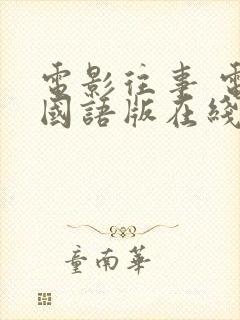 電影往事 電
國語版在綫
童南華